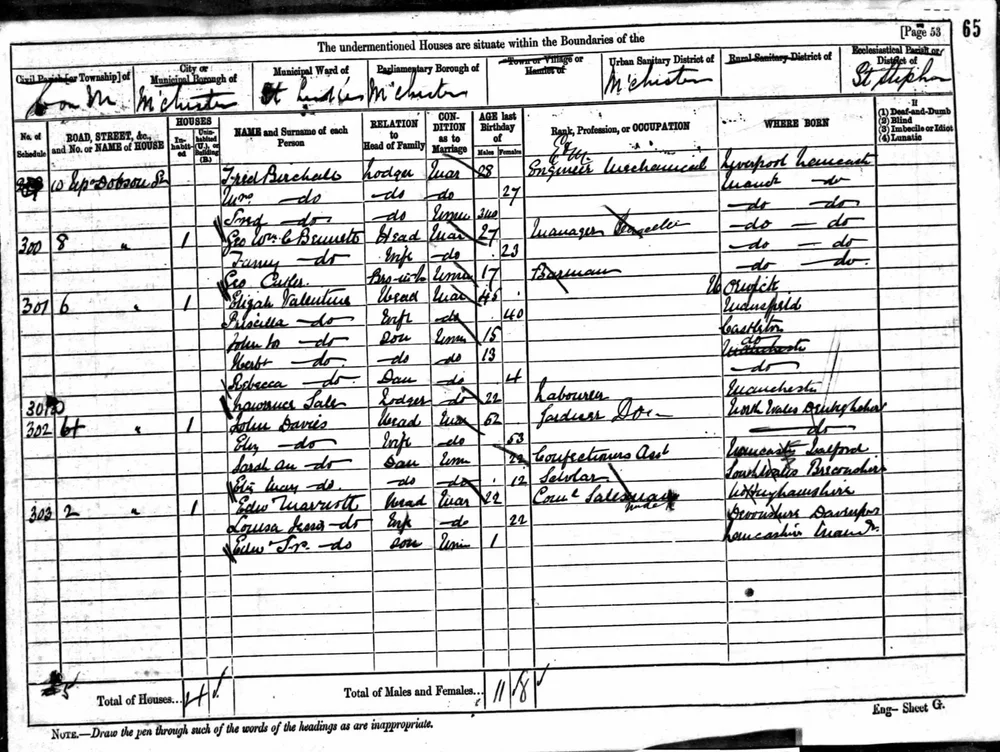 [Page 53
65
The undermentioned Houses are situate within the Boundaries of the
Civil Parish [or Township] of
City or Municipal Borough of
Municipal Ward of
Parliamentary Borough of
Town or Village or Hamlet of
Urban Sanitary District of
Rural Sanitary District of
Ecclesiastical Parish or District of
M'chester
M'chester
M'chester
St Stephen
No. of Schedule
ROAD, STREET, &c., and No. or NAME of HOUSE
HOUSES
Inhabited
Uninhabited (U.), or Building (B.)
NAME and Surname of each Person
RELATION to Head of Family
CONDITION as to Marriage
AGE last Birthday of
Males
Females
Rank, Profession, or OCCUPATION
WHERE BORN
If
(1) Deaf-and-Dumb
(2) Blind
(3) Imbecile or Idiot
(4) Lunatic
10 Upr Dobson St Fred Berchall Lodger Mar 28 Engineer Mechanical Liverpool
Mrs —do —do —do 27 —do
Fred —do —do —do —do
300 8 " 1 Geo Wm C Bennett Head Mar 27 Manager —do —do
Fanny —do Wife 23 —do —do
Geo Bro-in-l 17 Barman —do —do
301 6 " 1 Elijah Valentine Head Mar 45
Priscilla —do Wife —do 40 Mansfield
John —do Son 15 Castleton
Herbt —do —do —do 13 do
Rebecca —do Dau —do 4 —do
Lawrence Sale Lodger —do 22 Labourer Manchester
302 4 " 1 John Davies Head Mar 62 North Wales Denbighshire
Eliz —do Wife —do 53 —do
Sarah An —do Dau Unm 22 Confectioners Asst Salford
Eliz Mary —do —do —do 12 Scholar South Wales Breconshire
303 2 " 1 Edwd Marriott Head Mar 22 Coml Salesman Nottinghamshire
Louisa —do Wife —do 22 Devonshire Davenport
Edwd Jr. —do Son Unm 1 Lancashire
Total of Houses... 4
Total of Males and Females... 11 8
Eng—Sheet G.
NOTE.—Draw the pen through such of the words of the headings as are inappropriate.